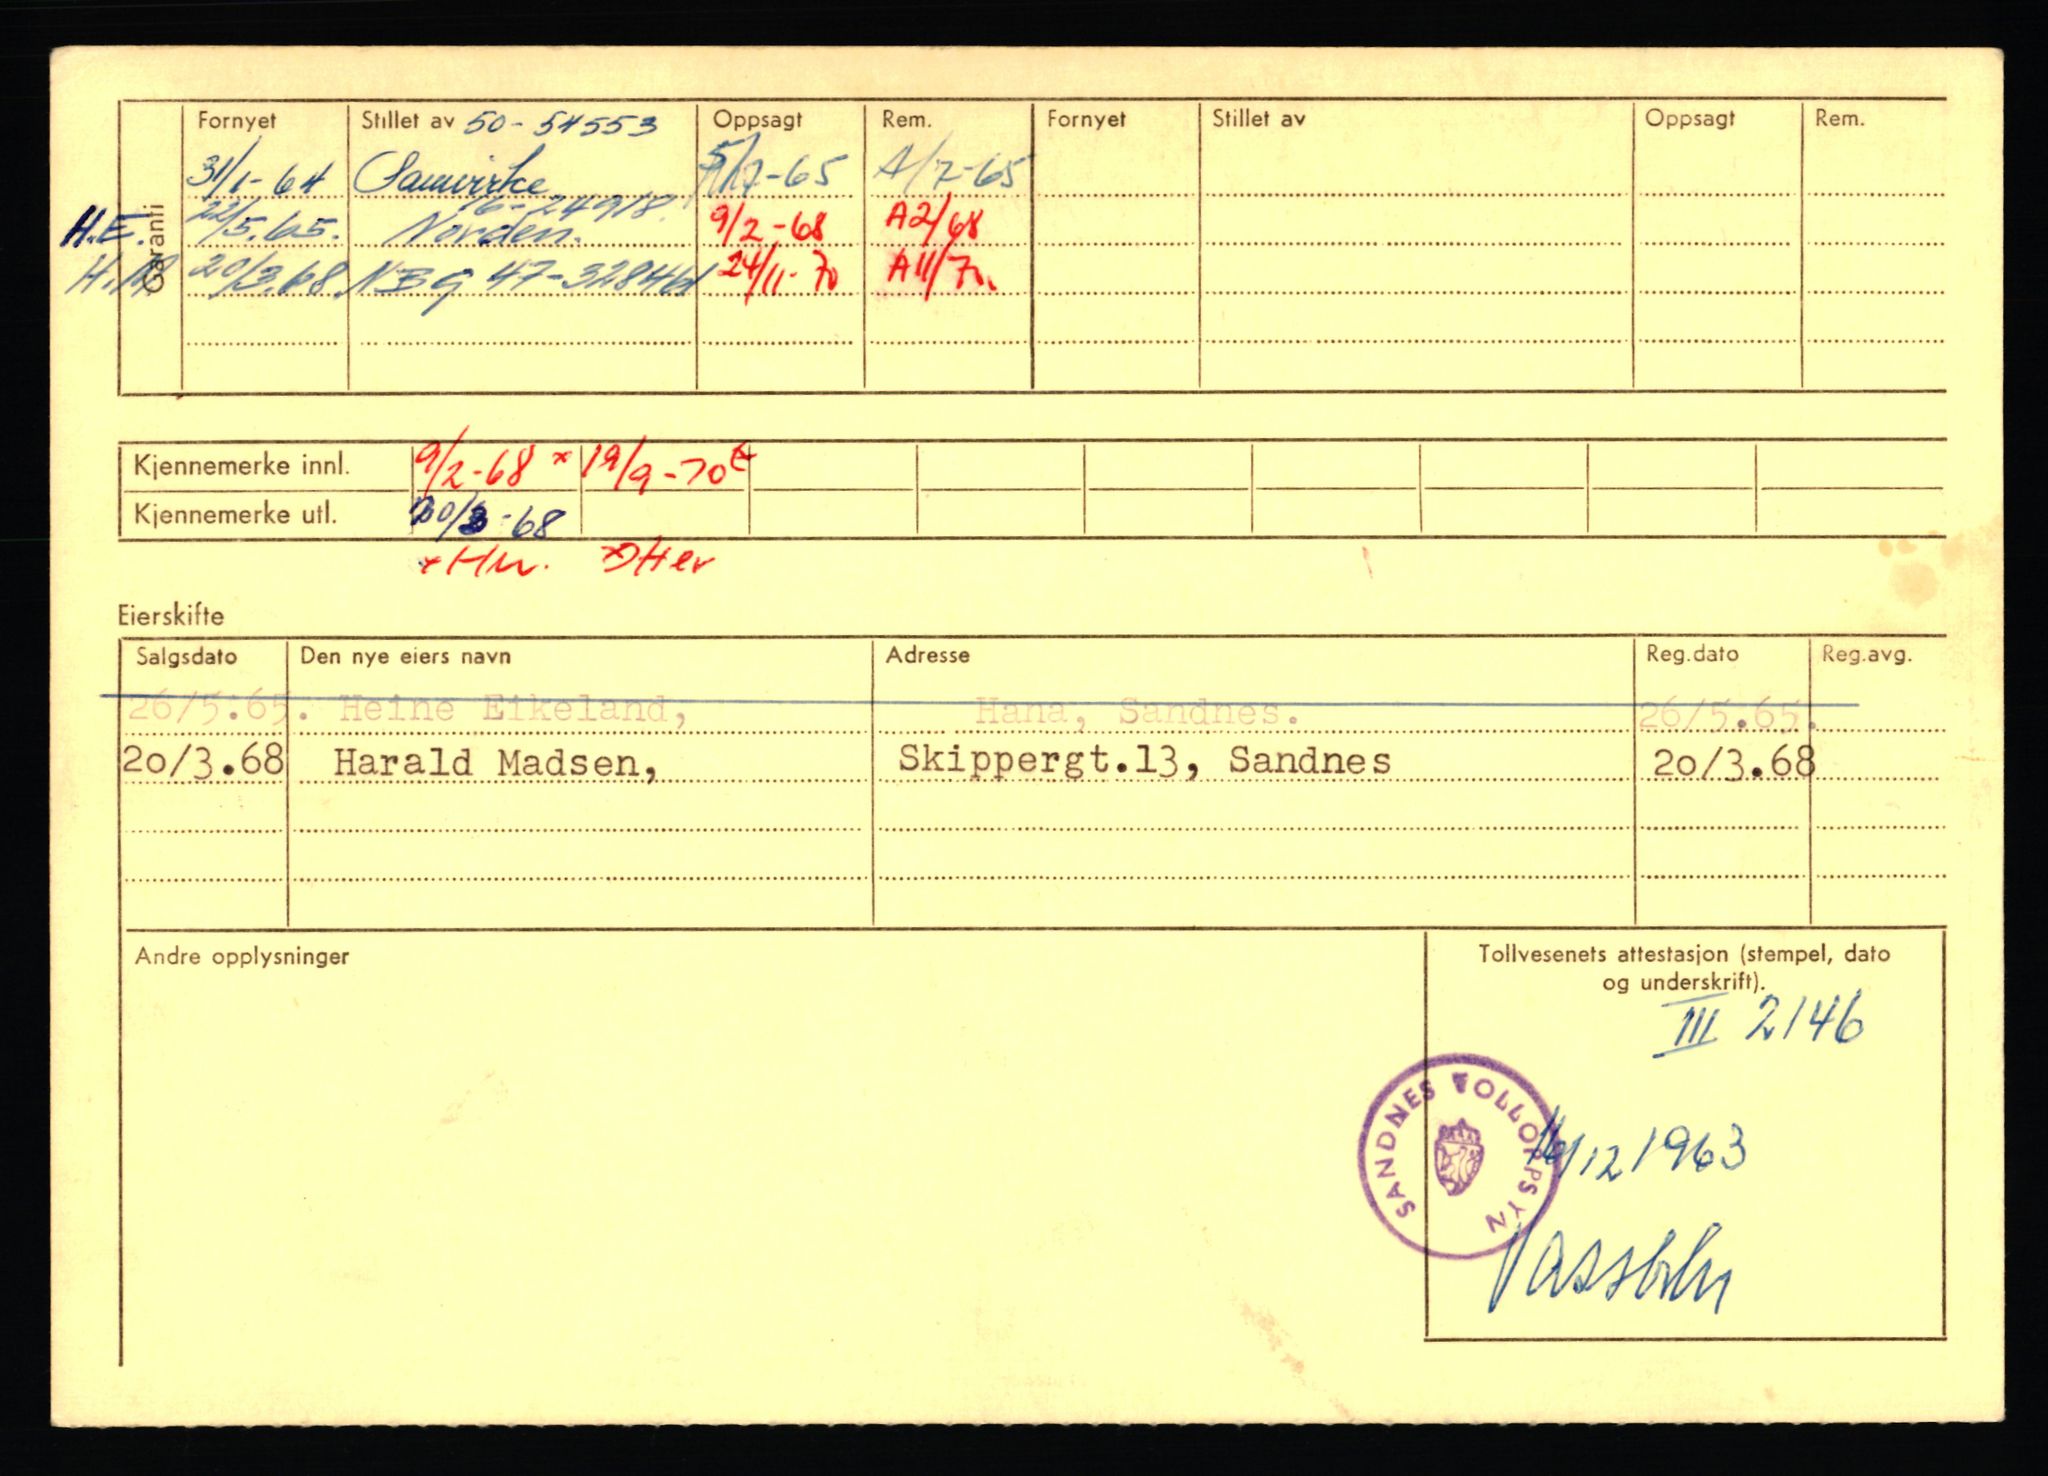 Fornyet Stillet av 50-54553 Oppsagt Rem. Fornyet Stillet av Oppsagt Rem.
Garanti
31/1-64 Samvirke 5/7-65 A/7-65
16-24918.
H.E. 22/5.65. Norden. 9/2-68 A2/68
H.M 20/3.68. NBG 47-32846 24/11-70 A11/70.
Kjennemerke innl. 9/2-68 x 19/9-70
Kjennemerke utl. 20/3-68
Eierskifte
Salgsdato Den nye eiers navn Adresse Reg.dato Reg.avg.
26/5.65. Heine Eikeland, Hana, Sandnes. 26/5.65.
20/3.68 Harald Madsen, Skippergt.13, Sandnes 20/3.68
Andre opplysninger
Tollvesenets attestasjon (stempel, dato
og underskrift).
III 2146
SANDNES TOLLOPPSYN
16/12 1963